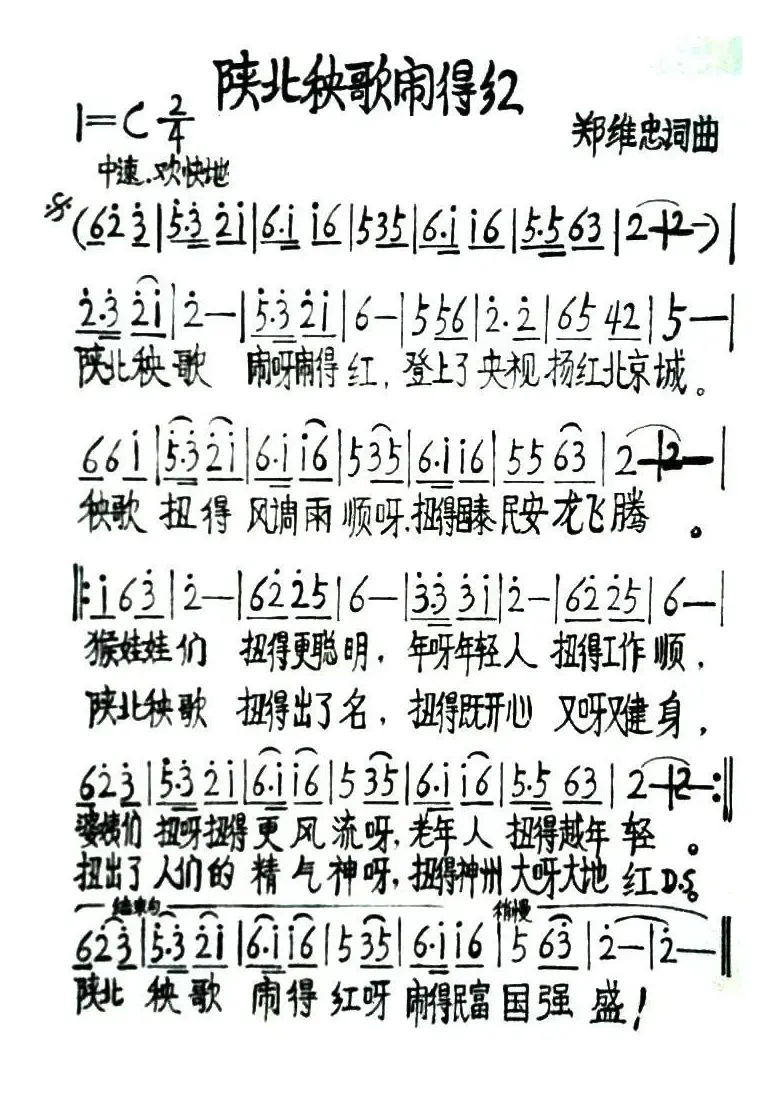 陕北秧歌闹得红
1=C 2/4
郑维忠词曲
中速.欢快地
(62̇3̇|5̇.3̇ 2̇1̇|6.1̇ 1̇6|535|6.1̇ 1̇6|5.5 63|2-|2-)|
2̇.3̇ 2̇1̇|2̇-|5̇.3̇ 2̇1̇|6-|556|2̇.2̇|65 42|5-|
陕北秧歌 闹呀闹得红，登上了央视扬红北京城。
661̇|5̇.3̇ 2̇1̇|6.1̇ 1̇6|535|6.1̇ 1̇6|55 63|2-|2-|
秧歌扭得风调雨顺呀.扭得国泰民安龙飞腾。
‖:1̇63̇|2̇-|62̇ 2̇5|6-|3̇.3̇ 3̇1̇|2̇-|62̇ 2̇5|6-|
猴娃娃们 扭得更聪明，年呀年轻人 扭得工作顺，
陕北秧歌 扭得出了名，扭得既开心 又呀又健身，
62̇3̇|5̇.3̇ 2̇1̇|6.1̇ 1̇6|535|6.1̇ 1̇6|5.5 63|2-|2-:‖
婆姨们扭呀扭得更风流呀，老年人扭得越年轻。
扭出了人们的精气神呀，扭得神州大呀大地红D.S.
结束句 稍慢
62̇3̇|5̇.3̇ 2̇1̇|6.1̇ 1̇6|535|6.1̇ 1̇6|5 63̇|2̇-|2̇-‖
陕北秧歌闹得红呀闹得民富国强盛！